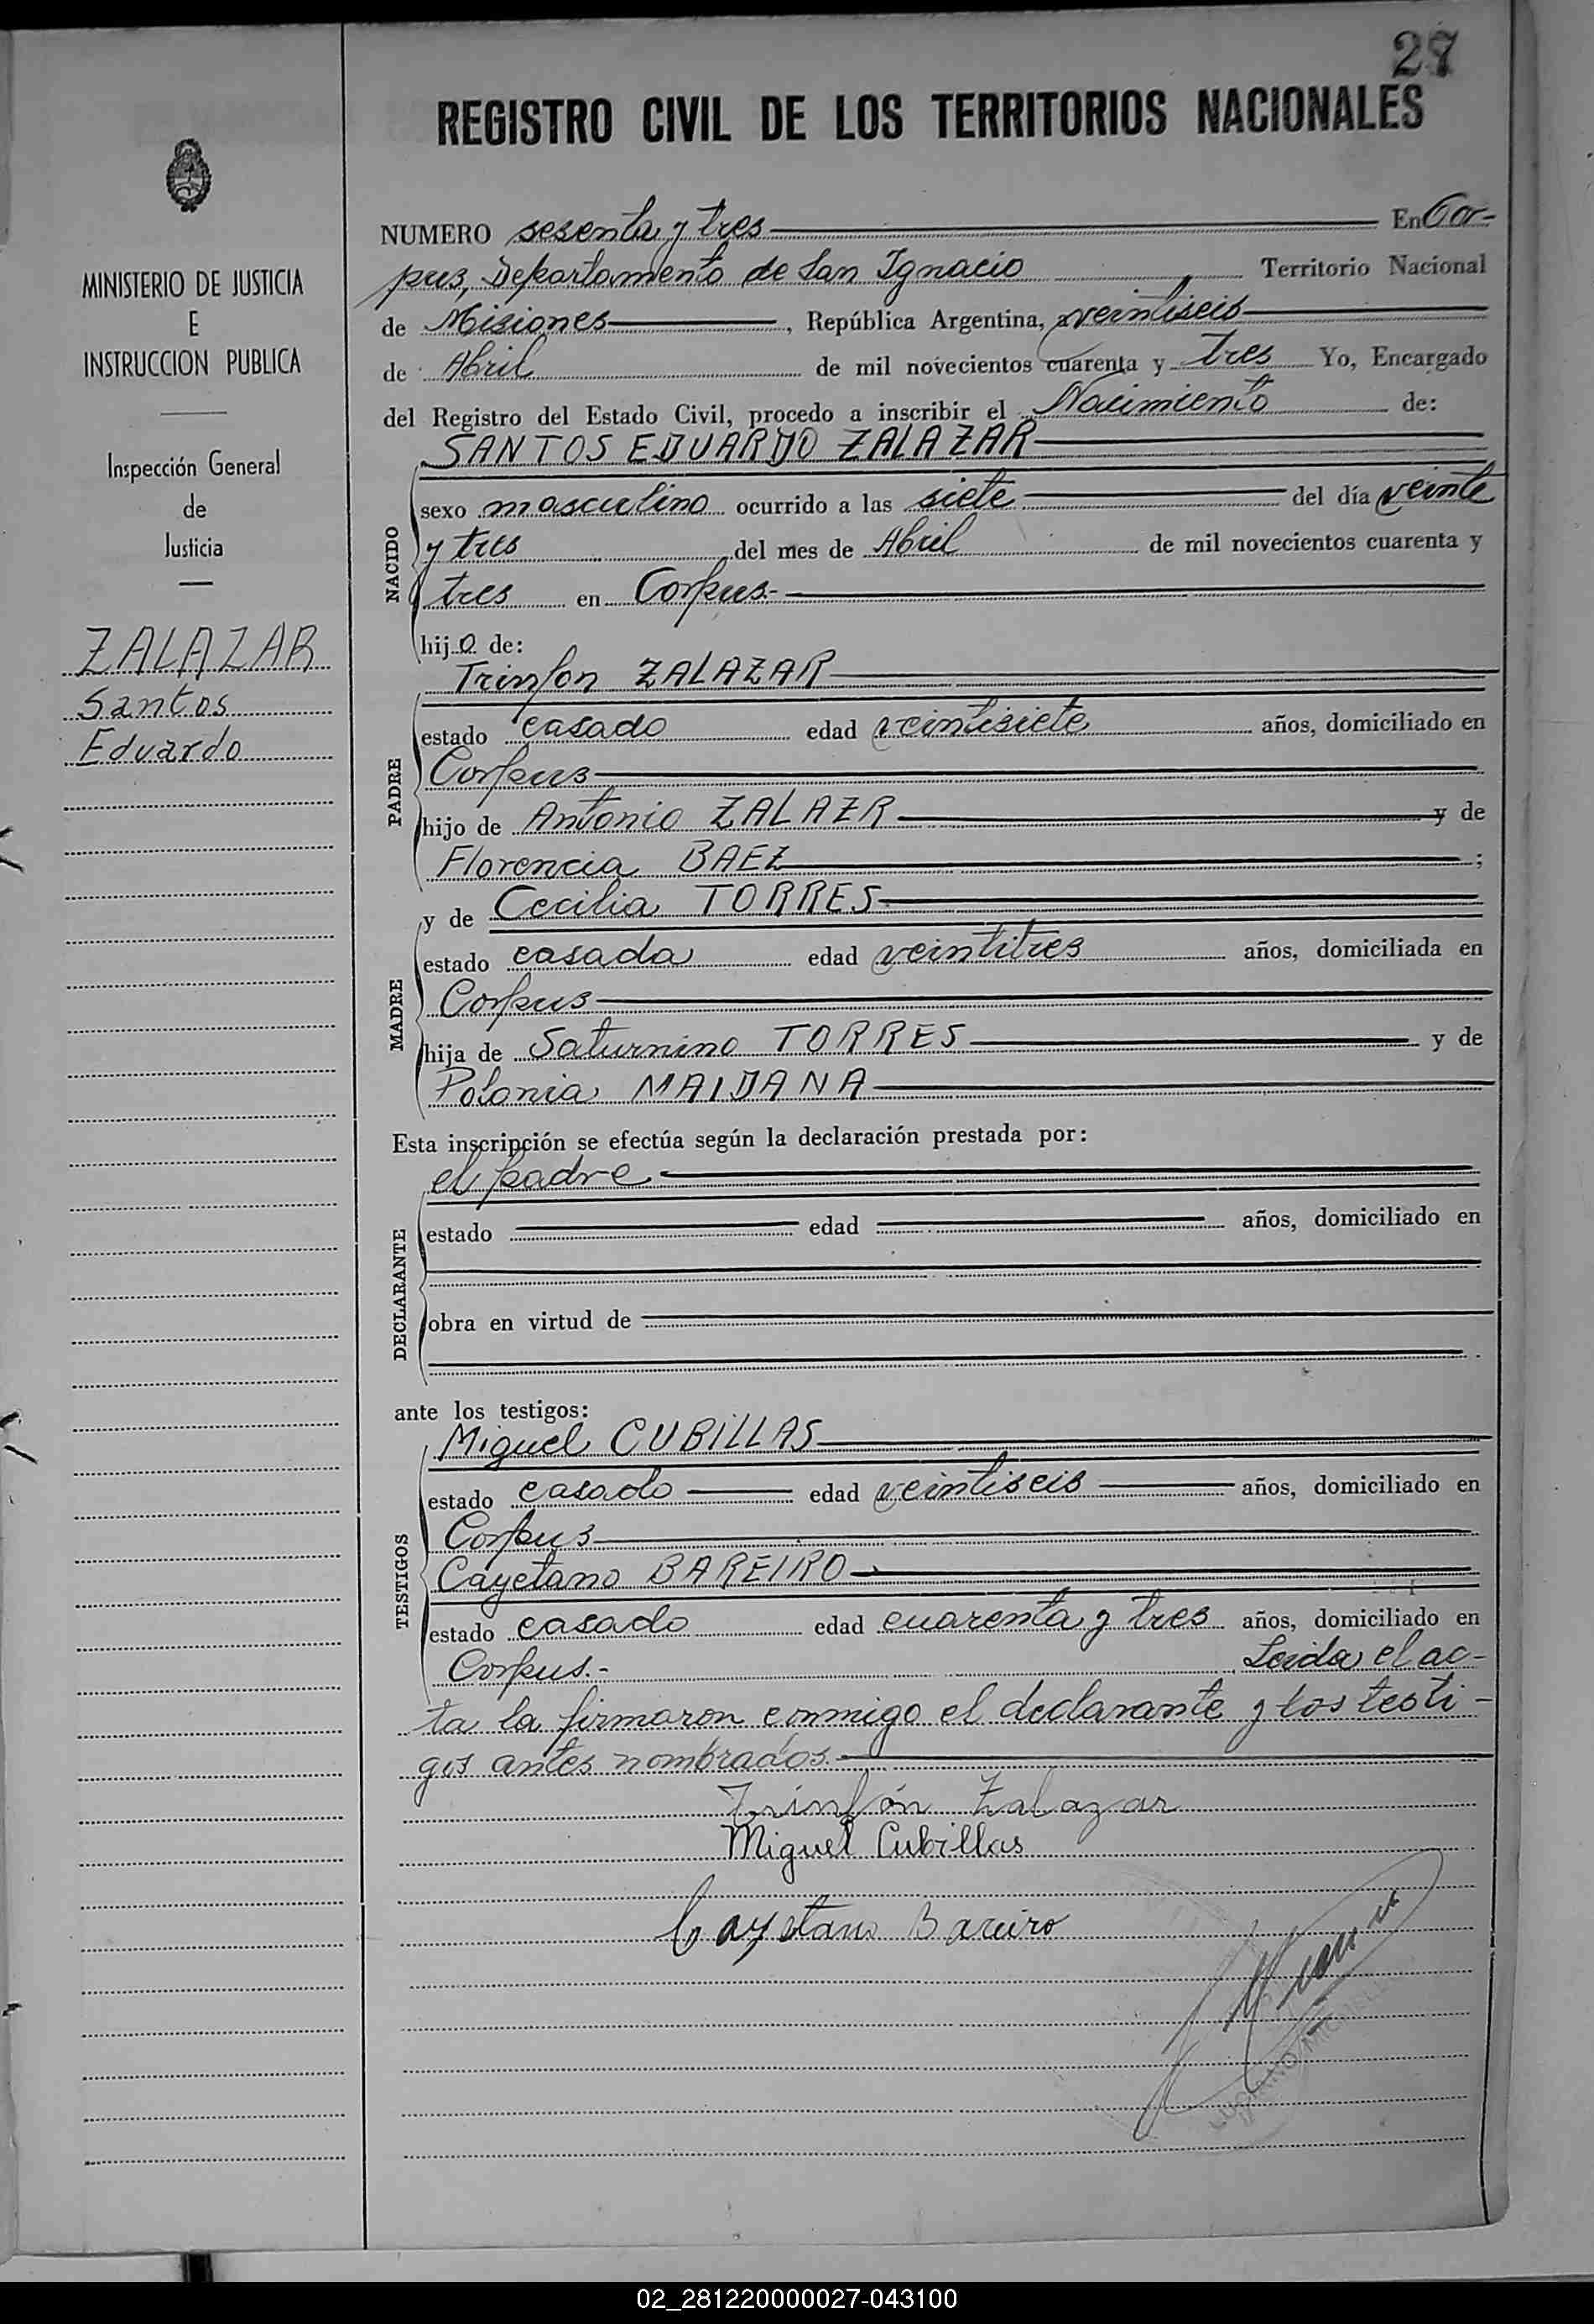 27
REGISTRO CIVIL DE LOS TERRITORIOS NACIONALES
MINISTERIO DE JUSTICIA
E
INSTRUCCION PUBLICA
Inspección General
de
Justicia
ZALAZAR
Santos
Eduardo
NUMERO sesenta y tres En Cor-
pus, Departamento de San Ignacio Territorio Nacional
de Misiones, República Argentina, a veintiseis
de Abril de mil novecientos cuarenta y tres Yo, Encargado
del Registro del Estado Civil, procedo a inscribir el Nacimiento de:
SANTOS EDUARDO ZALAZAR
NACIDO
sexo masculino ocurrido a las siete del día veinte
y tres del mes de Abril de mil novecientos cuarenta y
tres en Corpus.-
hijo de:
Trinfon ZALAZAR
PADRE
estado casado edad veintisiete años, domiciliado en
Corpus
hijo de Antonio ZALAZR y de
Florencia BAEZ;
y de Cecilia TORRES
MADRE
estado casada edad veintitres años, domiciliada en
Corpus
hija de Saturnino TORRES y de
Polonia MAIDANA
Esta inscripción se efectúa según la declaración prestada por:
el padre
DECLARANTE
estado edad años, domiciliado en
obra en virtud de
ante los testigos:
Miguel CUBILLAS
TESTIGOS
estado casado edad veintiseis años, domiciliado en
Corpus
Cayetano BAREIRO
estado casado edad cuarenta y tres años, domiciliado en
Corpus.- Leida el ac-
ta la firmaron conmigo el declarante y los testi-
gos antes nombrados.
Trinfón Zalazar
Miguel Cubillas
Cayetano Bareiro
02_281220000027-043100